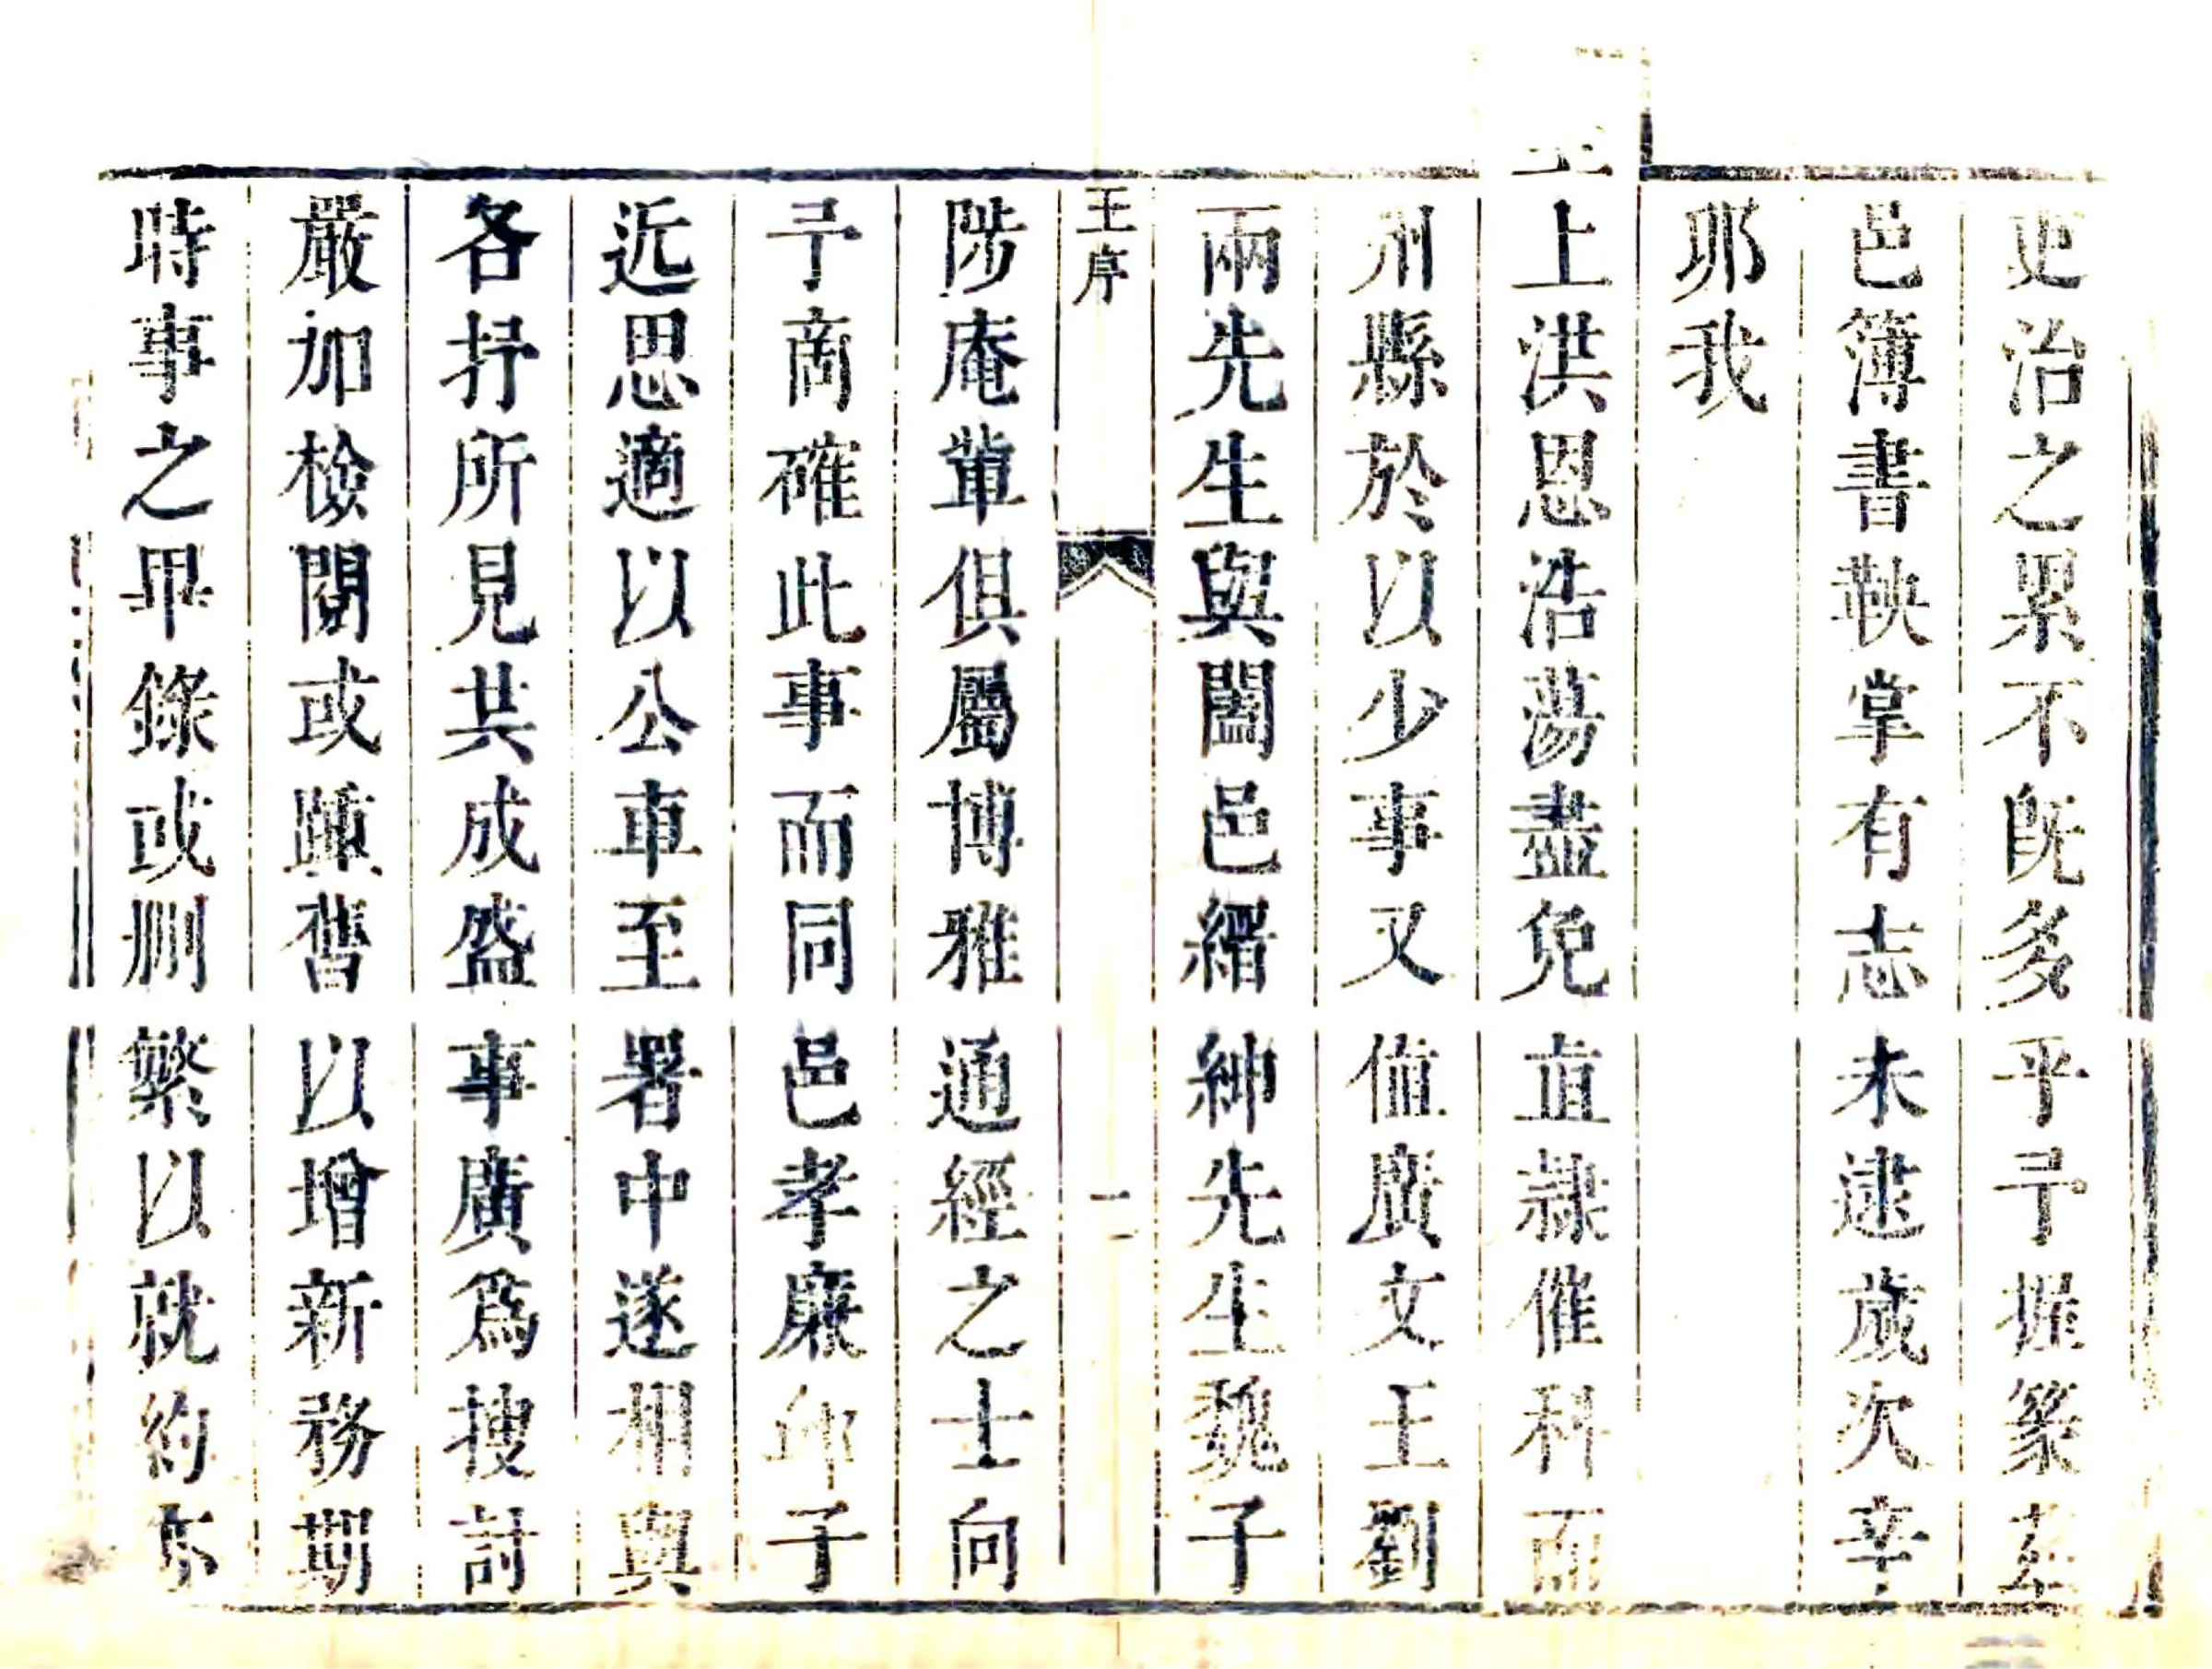 吏治之累不旣多乎予握篆奉
邑簿書鞅掌有志未逮歲次辛
卯我
上洪恩浩蕩盡免直隸催科而
州縣於以少事又值廣文王劉
兩先生與闔邑縉紳先生魏子
王序
二
陟庵軰俱屬博雅通經之士向
予商確此事而同邑孝廉邱子
近思適以公車至署中遂相與
各抒所見共成盛事廣爲搜討
嚴加檢閱或踵舊以增新務期
時事之畢錄或刪繁以就約